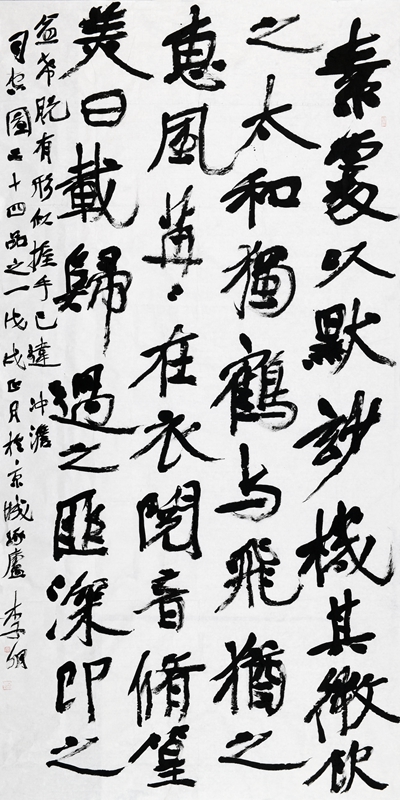 素處以默玅機其微飲
之太和獨鶴与飛猶之
惠風苒々在衣閱音脩篁
美曰載歸遇之匪深即之
愈希脱有形似握手已違 冲澹
司空圖二十四品之一戊戌正月於京城廬 李